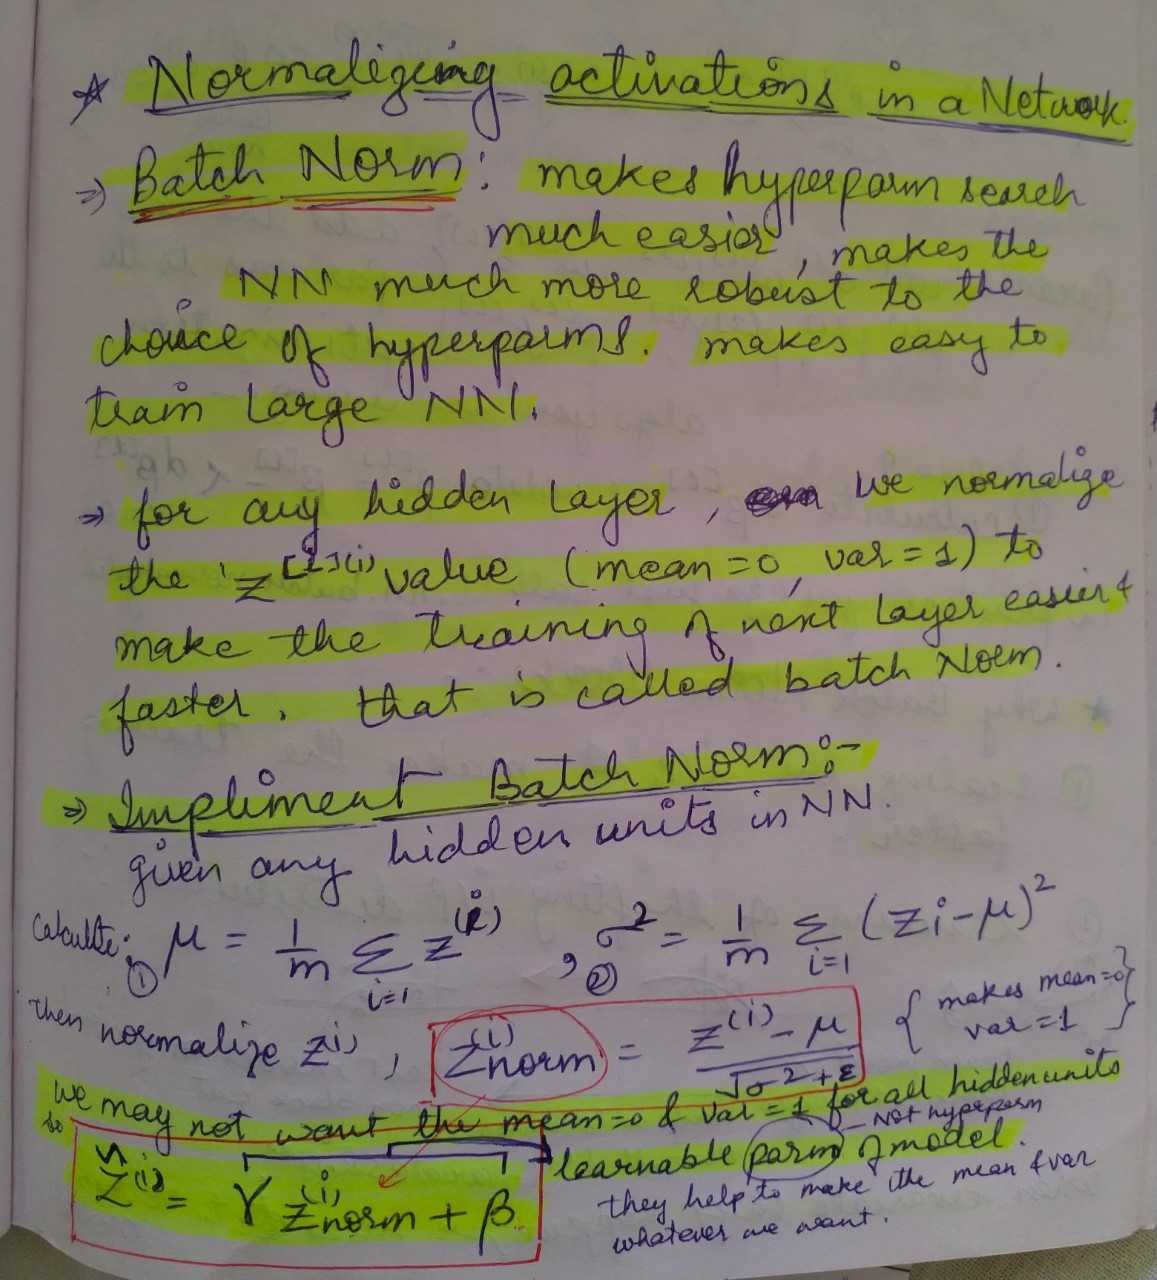 * Normalizing activations in a Network.
⇒ Batch Norm: makes hyperparm search
much easier, makes the
NN much more robust to the
choice of hyperparms. makes easy to
train Large NN.
⇒ for any hidden layer, we normalize
the 'z^{[2](i)}' value (mean=0, var=1) to
make the training of next Layer easier &
faster. that is called batch Norm.
⇒ Impliment Batch Norm:-
given any hidden units in NN.
Calculate: ① μ = 1/m Σ_{i=1} z^{(i)} , ② σ² = 1/m Σ_{i=1} (zi-μ)²
then normalize z^{i)}, z^{(i)}norm = (z^{(i)} - μ) / √(σ²+ε) { makes mean=0 var=1 }
we may not want the mean=0 & var=1 for all hidden units
so
z̃^{(i)} = γ z^{(i)}norm + β
learnable parm of model. - Not hyperparm
they help to make the mean & var
whatever we want.